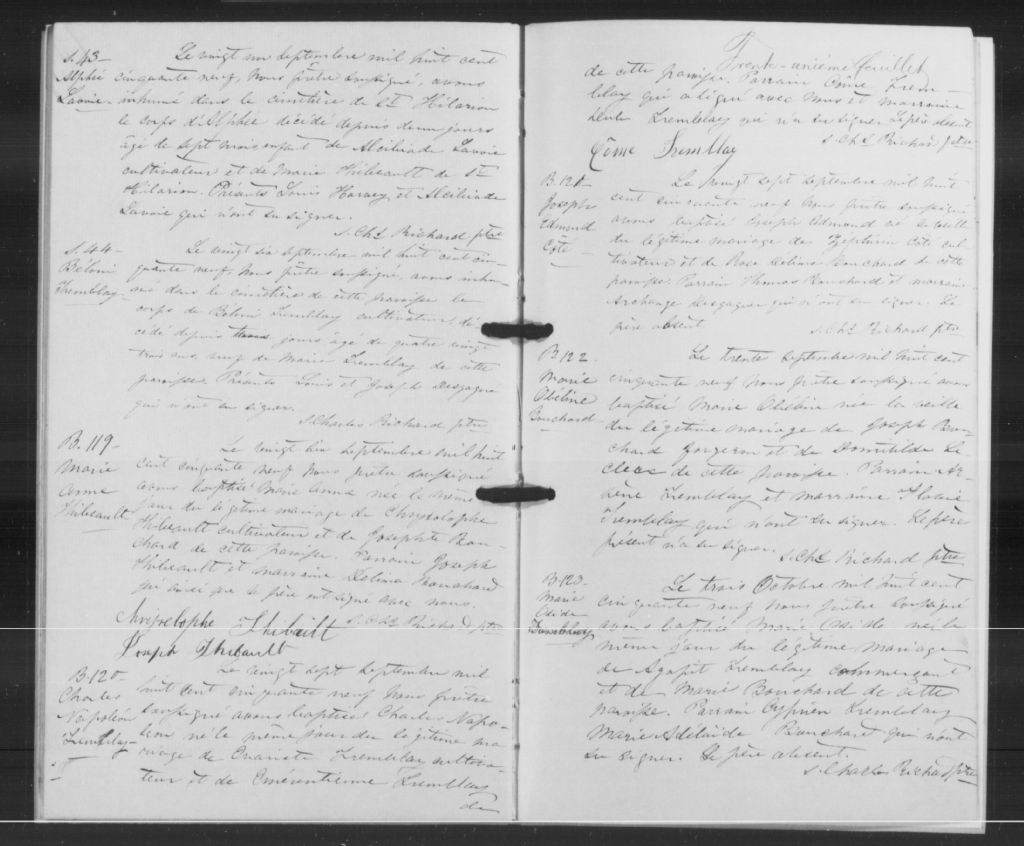 S. 43-
Alphée
Lavoie-
Le vingt un septembre mil huit cent
cinquante neuf, Nous prêtre soussigné, avons
inhumé dans le cimetière de St Hilarion
le corps d'Alphée décédé depuis deux jours
âgé de sept mois enfant de Alcibiade Lavoie
cultivateur et de Marie Thibeault de St
Hilarion. Présents Louis Harvey et Alcibiade
Lavoie qui n'ont su signer.
S. Chs Richard ptre
S. 44-
Béloni
Tremblay-
Le vingt six septembre mil huit cent cin-
quante neuf, Nous prêtre soussigné, avons inhu-
mé dans le cimetière de cette paroisse le
corps de Béloni Tremblay cultivateur, dé-
cédé depuis jours âgé de quatre vingt
trois ans, veuf de Marie Tremblay de cette
paroisse. Présents Louis et Joseph Desgagne
qui n'ont su signer.
S. Charles Richard ptre
B. 119-
Marie
Anne
Thibeault
Le vingt septembre mil huit
cent cinquante neuf Nous prêtre soussigné
avons baptisé Marie Anne née le même
jour du légitime mariage de Chrysolophe
Thibeault cultivateur et de Josephte Bou-
chard de cette paroisse. Parrain Joseph
Thibeault et marraine Delima Bouchard
qui ainsi que le père ont signé avec nous.
S. Chs Richard ptre
Thibault
Joseph Thibault
B. 120
Charles
Napoléon
Tremblay-
Le vingt sept septembre mil
huit cent cinquante neuf Nous prêtre
soussigné avons baptisé Charles Napo-
léon né le même jour du légitime ma-
riage de Evariste Tremblay cultiva-
teur et de Emérentienne Tremblay
de
Trente-unième feuillet
de cette paroisse. Parrain Côme Trem-
blay qui a signé avec nous et marraine
Tremblay qui n'a su signer. Le père absent
S. Chs Richard ptre
Côme Tremblay
B. 121-
Joseph
Edmond
Coté
Le vingt sept septembre mil huit
cent cinquante neuf Nous prêtre soussigné
avons baptisé Joseph Edmond né la veille
du légitime mariage de Zéphirin Coté cul-
tivateur et de Rose Delima Bouchard de cette
paroisse. Parrain Thomas Bouchard et marraine
Archange Desgagner qui n'ont su signer. Le
père absent
S. Chs Richard ptre
B. 122.
Marie
Obéline
Bouchard
Le trente septembre mil huit cent
cinquante neuf Nous prêtre soussigné avons
baptisé Marie Obéline née la veille
du légitime mariage de Joseph Bou-
chard forgeron et de Domitilde Le-
clerc de cette paroisse. Parrain Ar-
sène Tremblay et marraine Flavie
Tremblay qui n'ont su signer. Le père
présent n'a su signer.
S. Chs Richard ptre
B. 123-
Marie
Tremblay
Le trois Octobre mil huit cent
cinquante neuf Nous prêtre soussigné
avons baptisé Marie née le
même jour du légitime mariage
de Agapit Tremblay commerçant
et de Marie Bouchard de cette
paroisse. Parrain Cyprien Tremblay
Marie Adelaïde Bouchard qui n'ont
su signer. Le père absent.
S. Charles Richard ptre